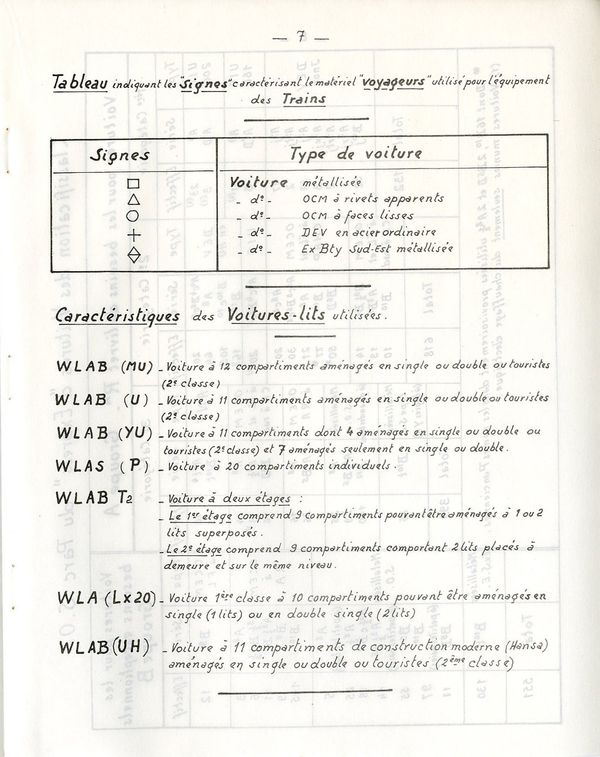 — 7 —
Tableau indiquant les "Signes" caractérisant le matériel "voyageurs" utilisé pour l'équipement
des Trains
Signes
Type de voiture
□ Voiture métallisée
△ _ dº _ OCM à rivets apparents
○ _ dº _ OCM à faces lisses
+ _ dº _ DEV en acier ordinaire
_ dº _ Ex Bty Sud-Est métallisée
Caractéristiques des Voitures-lits utilisées.
WLAB (MU) _ Voiture à 12 compartiments aménagés en single ou double ou touristes
(2e classe)
WLAB (U) _ Voiture à 11 compartiments aménagés en single ou double ou touristes
(2e classe)
WLAB (YU) _ Voiture à 11 compartiments dont 4 aménagés en single ou double ou
touristes (2e classe) et 7 aménagés seulement en single ou double.
WLAS (P) _ Voiture à 20 compartiments individuels.
WLAB T2 _ Voiture à deux étages :
_ Le 1er étage comprend 9 compartiments pouvant être aménagés à 1 ou 2
lits superposés.
_ Le 2e étage comprend 9 compartiments comportant 2 lits placés à
demeure et sur le même niveau.
WLA (Lx20) _ Voiture 1ère classe à 10 compartiments pouvant être aménagés en
single (1 lits) ou en double single (2 lits)
WLAB (UH) _ Voiture à 11 compartiments de construction moderne (Hansa)
aménagés en single ou double ou touristes (2ème classe)